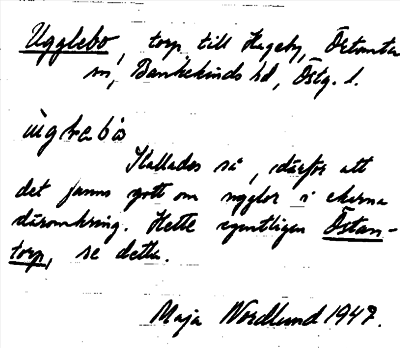 Ugglebo, torp till Hageby, Örtomta
sn, Bankekinds hd, Östg. l.
ùgləbò
Kallades så, därför att
det fanns gott om ugglor i ekarna
däromkring. Hette egentligen Östan-
torp, se detta.
Maja Nordlund 1947.